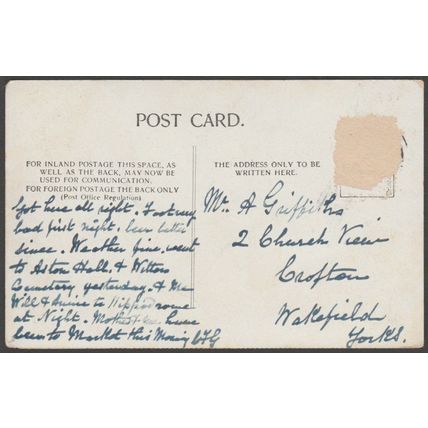 POST CARD.
FOR INLAND POSTAGE THIS SPACE, AS
WELL AS THE BACK, MAY NOW BE
USED FOR COMMUNICATION.
FOR FOREIGN POSTAGE THE BACK ONLY
(Post Office Regulation)
THE ADDRESS ONLY TO BE
WRITTEN HERE.
Got here all right. Foot very
bad first night. been better
since. Weather fine. went
to Aston Hall. & Witton
Cemetery yesterday. &
Will & Annie to Hippodrome
at Night. have
been to Market this Morning
Mr. A Griffiths
2 Church View
Crofton
Wakefield
Yorks.